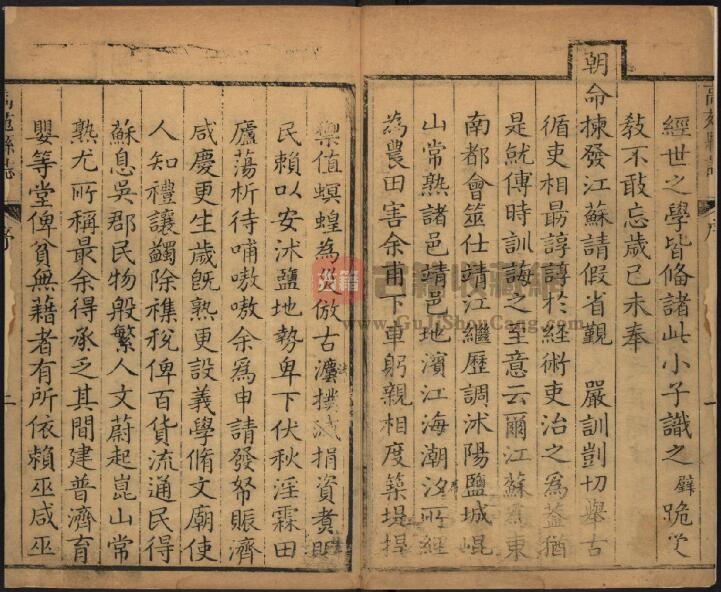 經世之學皆偹諸此小子識之 璧 跪受
敎不敢忘歲己未奉
朝命揀發江蘇請假省覲 嚴訓剴切舉古
循吏相勗諄諄於經術吏治之為葢猶
是就傅時訓誨之至意云爾江蘇為東
南都會筮仕靖江繼歷調沭陽鹽城崐
山常熟諸邑靖邑地濱江海潮汐所經
為農田害余甫下車躬親相度築堤捍
禦值螟蝗為災倣古瀍撲滅捐資煑
民賴以安沭鹽地勢卑下伏秋淫霖田
廬蕩析待哺嗷嗷余爲申請發帑賑濟
咸慶更生歲旣熟更設義學脩文廟使
人知禮讓蠲除襍稅俾百貨流通民得
蘇息吳郡民物殷繁人文蔚起崑山常
熟尤所稱最余得承乏其間建普濟育
嬰等堂俾貧無藉者有所依賴巫咸巫
高苑縣誌
序
二
古籍收藏網
www.GuJiShouCang.com